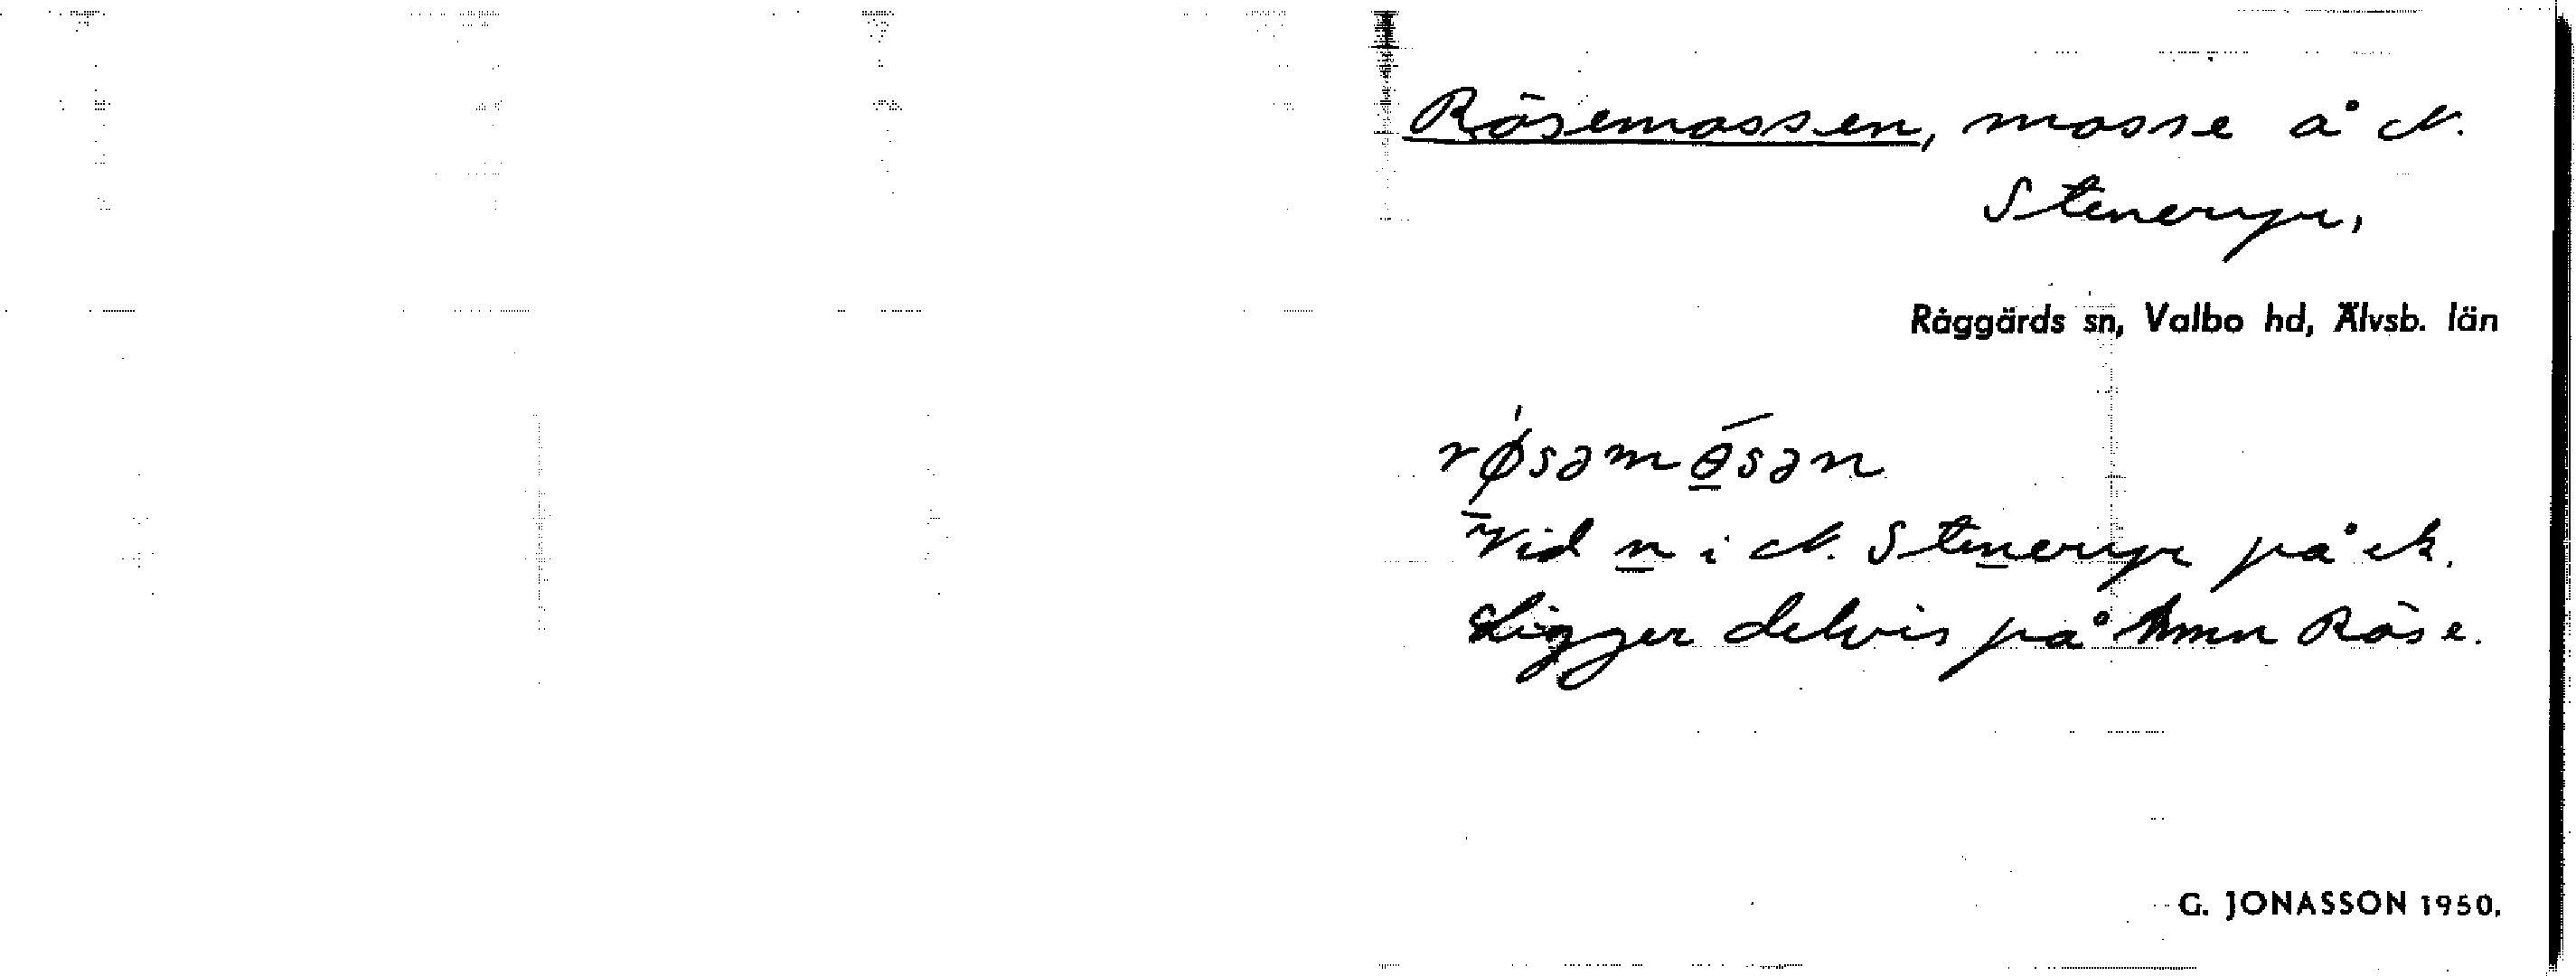 Rösemossen, mosse å N.
Steneryr,
Råggärds sn, Valbo hd, Älvsb. län
rø̀səmɵ́sən
Vid n i N. Steneryr på ek.
Ligger delvis på hmn Röse.
G. JONASSON 1950.